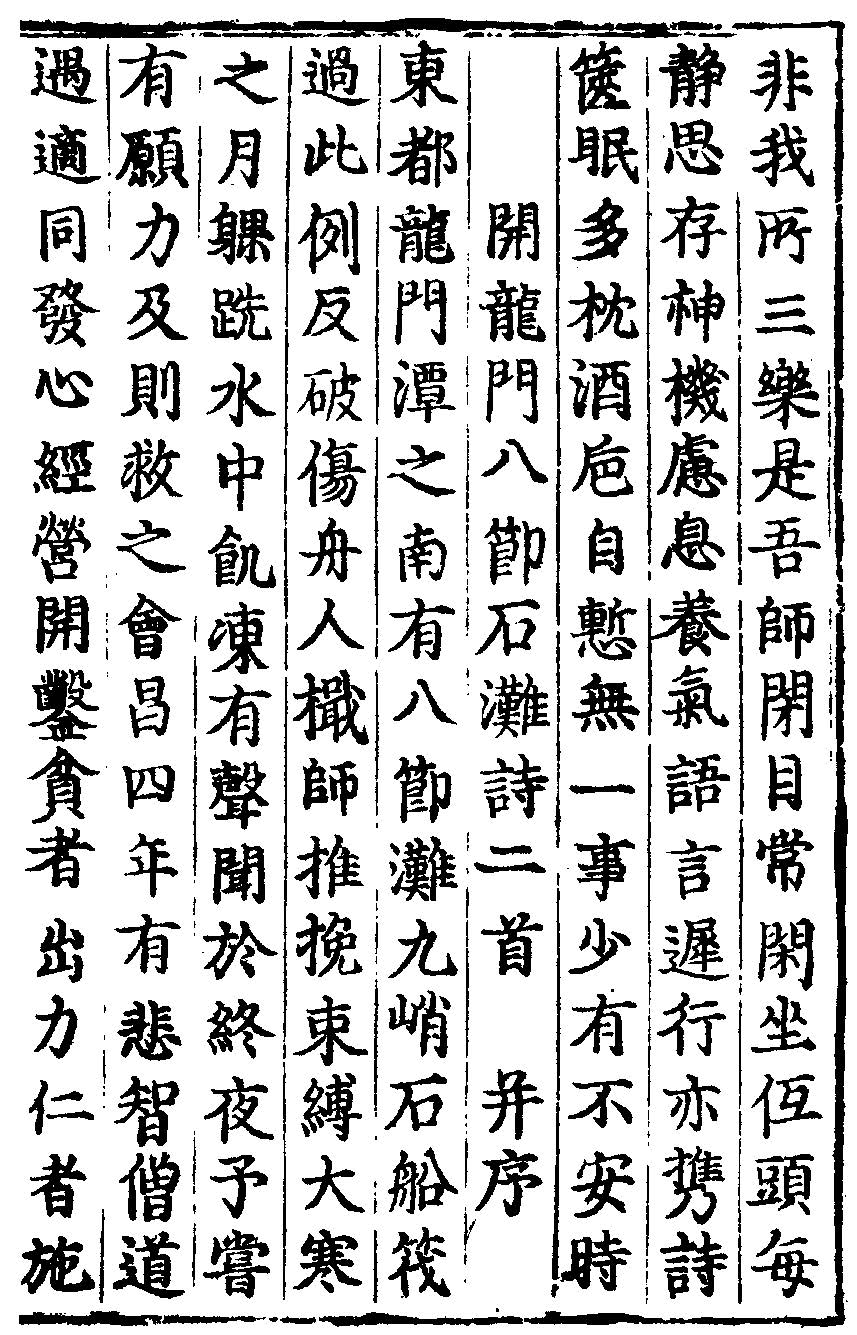 非我所三樂是吾師閉目常閑坐伍頭每
静思存神機慮息養氣語言遲行亦攜詩
篋眠多枕酒巵自慙無一事少有不安時
開龍門八節石灘詩二首 并序
東都龍門潭之南有八節灘九峭石船筏
過此例反破傷舟人檝師推挽束縛大寒
之月躶跣水中飢凍有聲聞於終夜予嘗
有願力及則救之會昌四年有悲智僧道
遇適同發心經營開鑿貧者出力仁者施